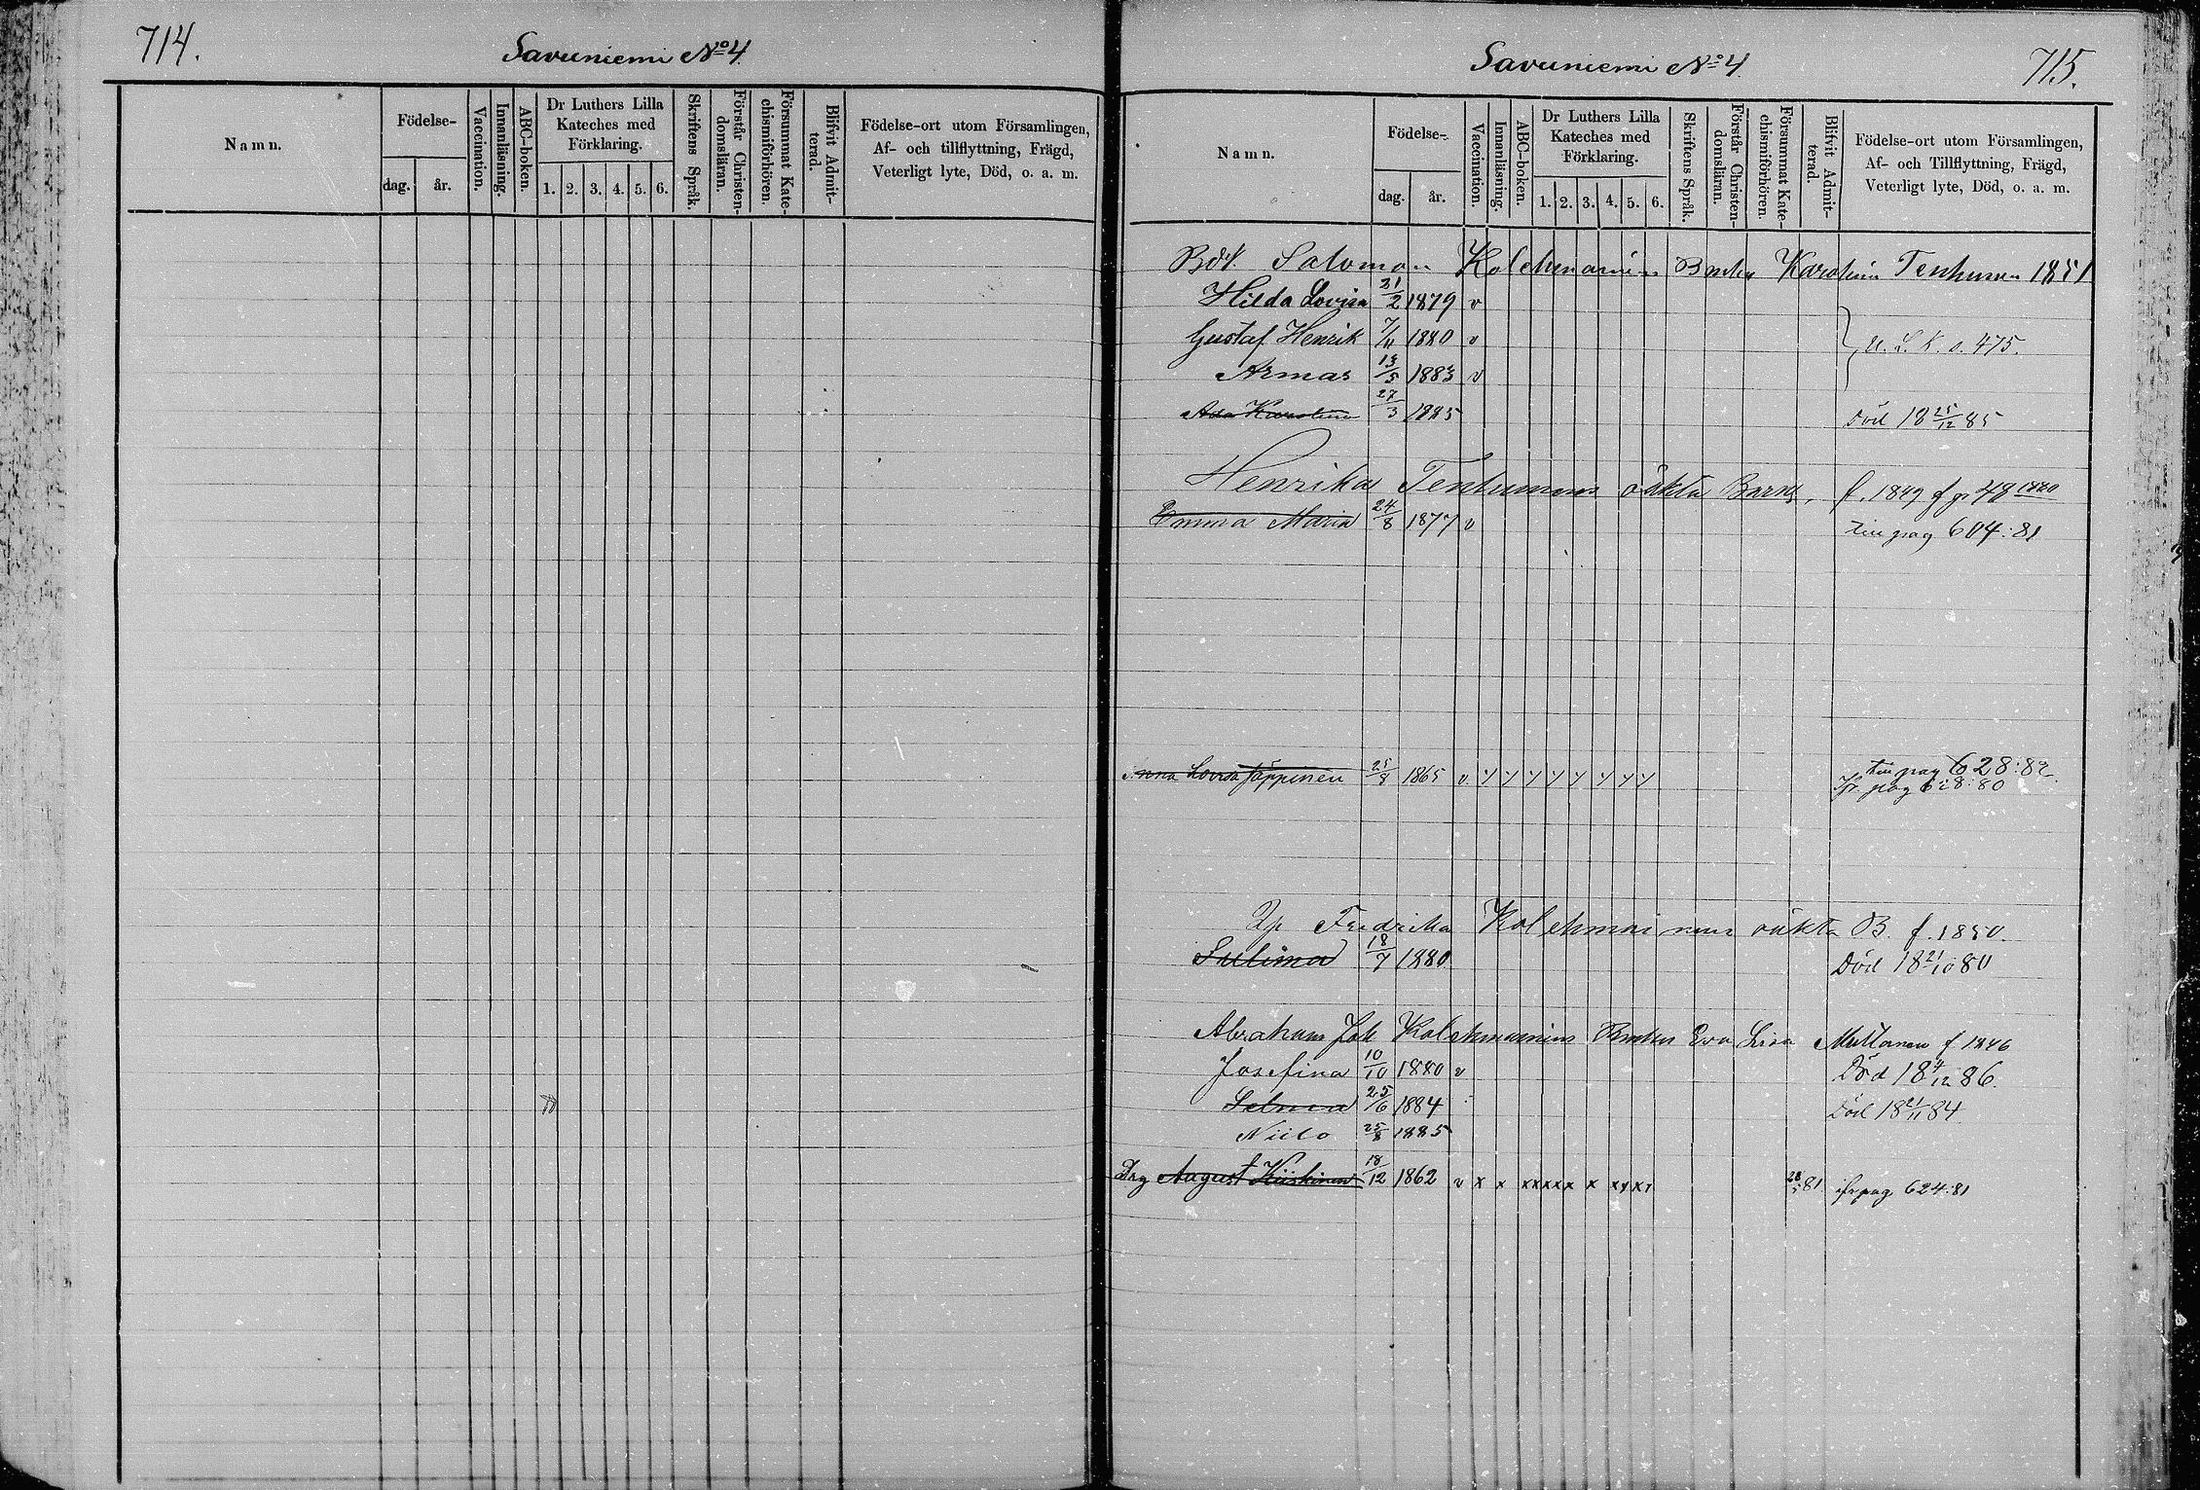 714.
Savuniemi No 4
Namn.
Födelse-
dag.
år.
Vaccination.
Innanläsning.
ABC-boken.
Dr Luthers Lilla
Kateches med
Förklaring.
1. 2. 3. 4. 5. 6.
Skriftens Språk.
Förstår Christen-
domsläran.
Försummat Kate-
chismiförhören.
Blifvit Admit-
terad.
Födelse-ort utom Församlingen,
Af- och tillflyttning, Frägd,
Veterligt lyte, Död, o. a. m.
Savuniemi No 4
715.
Namn.
Födelse-
dag.
år.
Vaccination.
Innanläsning.
ABC-boken.
Dr Luthers Lilla
Kateches med
Förklaring.
1. 2. 3. 4. 5. 6.
Skriftens Språk.
Förstår Christen-
domsläran.
Försummat Kate-
chismiförhören.
Blifvit Admit-
terad.
Födelse-ort utom Församlingen,
Af- och Tillflyttning, Frägd,
Veterligt lyte, Död, o. a. m.
Salomon Kolehmainens Karolina Tenhunen 1851
Hilda Lovisa 21/2 1879 v
Gustaf Henrik 7/11 1880 v
475.
Armas 13/5 1883 v
Ada Karolina 27/3 1885 Död 18 25/12 85
Henrika Tenhunens oäkta Barn, f. 1849
Emma Maria 24/8 1877 v pag 604:81
Anna Lovisa Jäppinen 25/8 1865 v y y y y y y y y pag 628:82
pag 628:80
Fredrika Kolehmainens oäkta B. f. 1850.
Selima 18/7 1880 Död 18 21/10 80
Abraham Joh Kolehmainens Eva Lisa Muttonen f 1846
Josefina 10/10 1880 v Död 18 4/12 86.
Selma 25/6 1884 Död 18 21/11 84
Niilo 25/8 1885
Drg August Kiiskinen 18/12 1862 v x x xxxxx x xxxx 81 pag 624:81